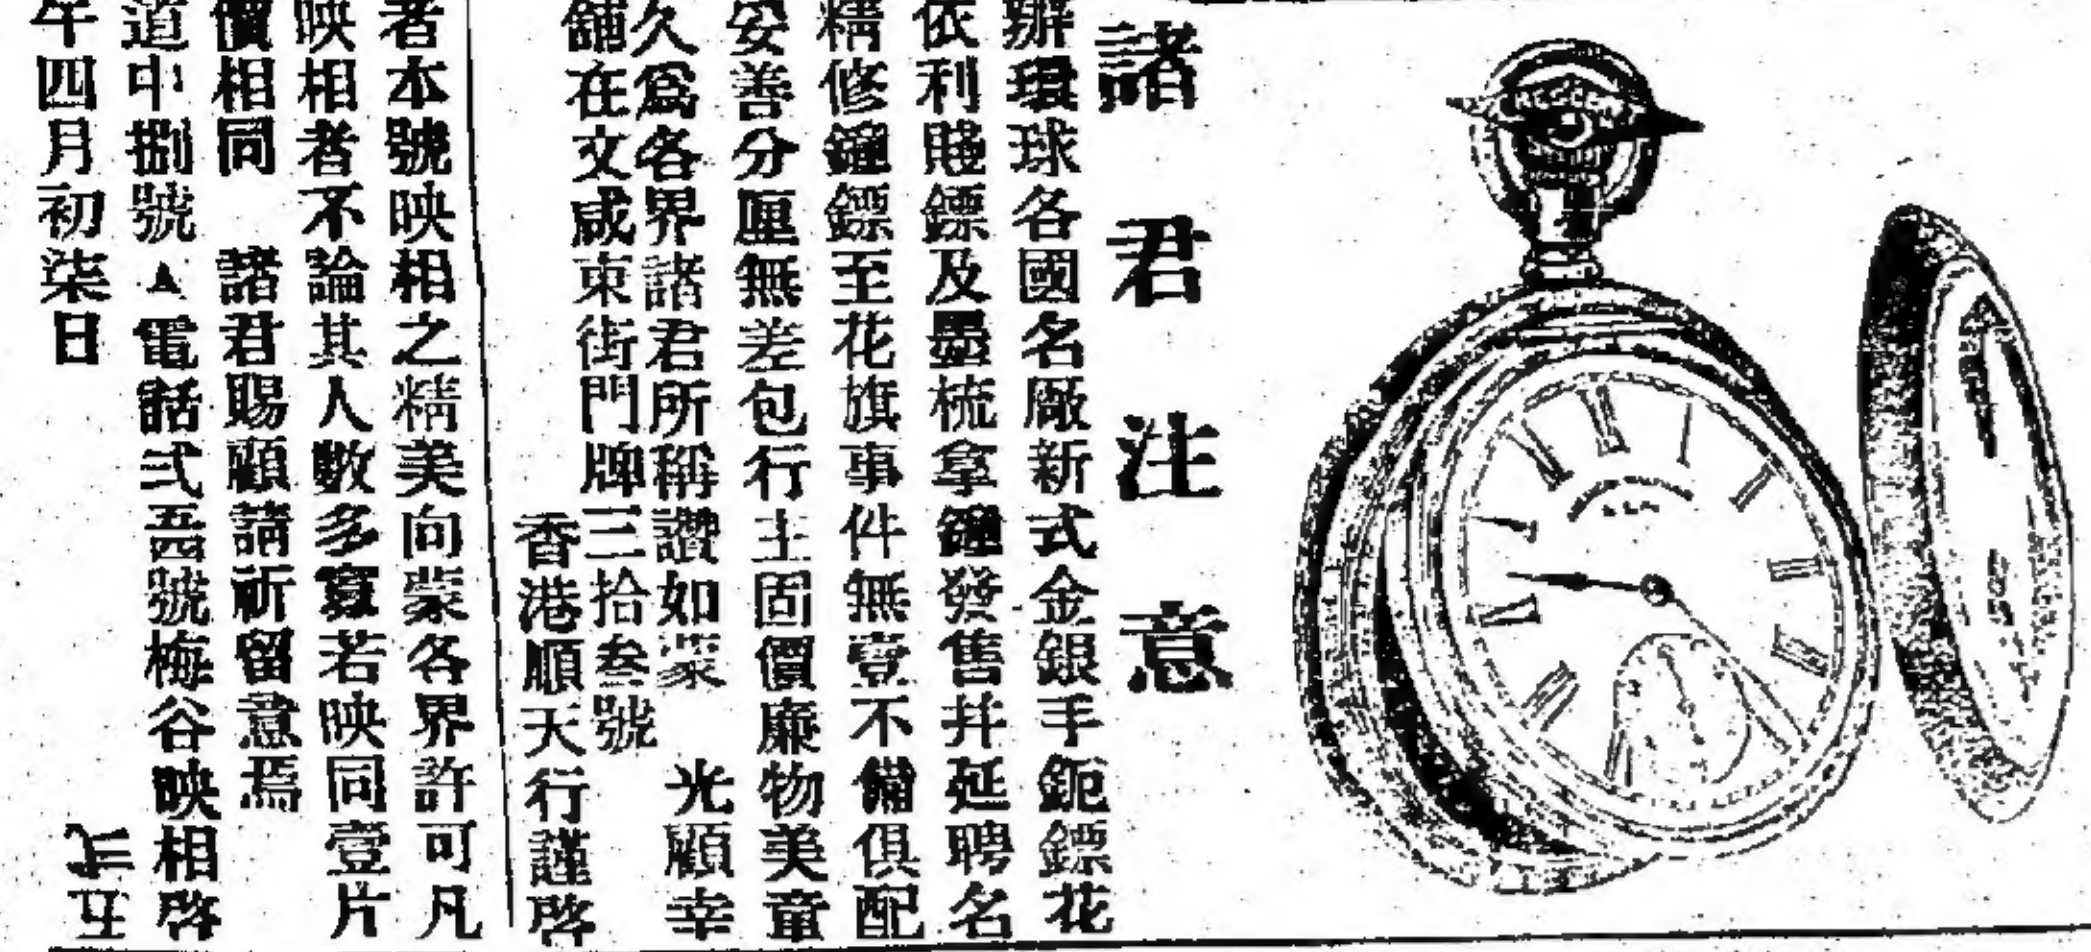 諸君注意
辦環球名國名厰新式金銀手鈪鏢花
依利賤鏢及墨梳拿鐘發售幷延聘名
精修鐘鏢至花旗事件無壹不備俱配
妥善分厘無差包行主固價廉物美童
久爲各界諸君所稱讚如蒙 光顧幸
舖在文咸東街門牌三拾叁號
香港順天行謹啓
者本號映相之精美向蒙各界許可凡
映相者不論其人數多寡若映同壹片
價相同 諸君賜顧請祈留意焉
道中捌號▲電話式五四號梅谷映相啓
午四月初柒日